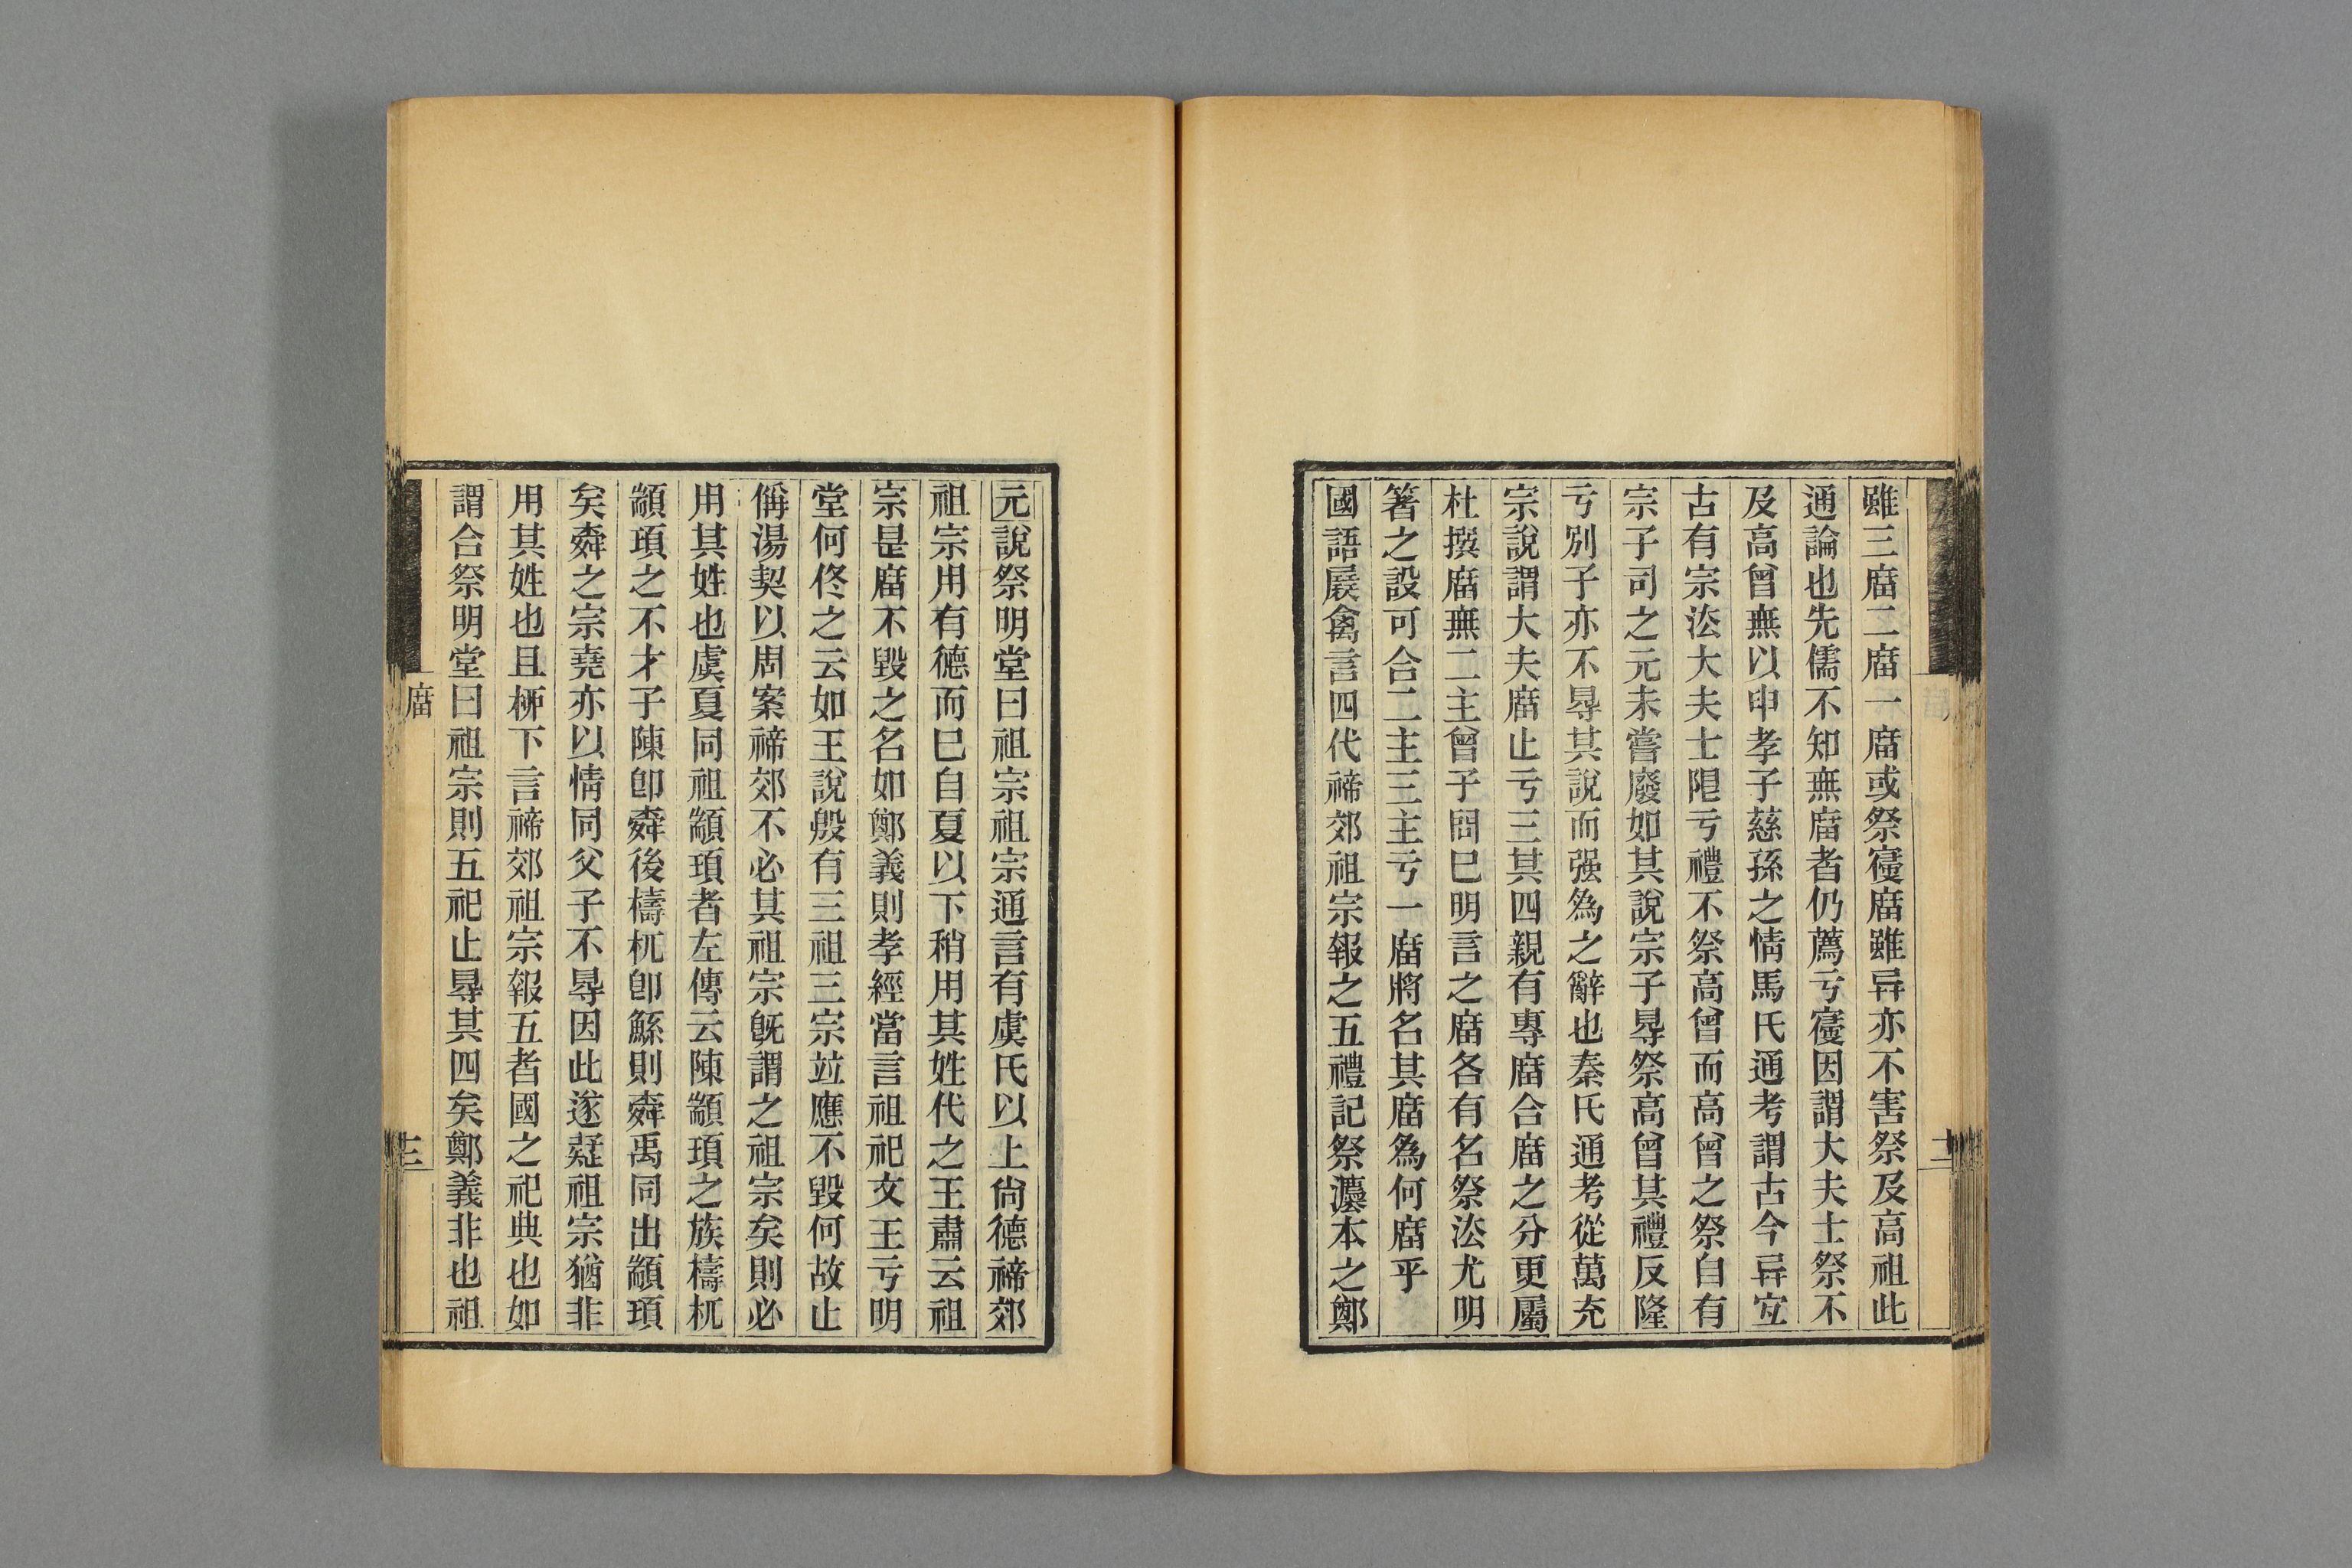 雖三庿二庿一庿或祭寑庿雖异亦不害祭及高祖此
通論也先儒不知無庿者仍薦亏寑因謂大夫士祭不
及高曾無以申孝子慈孫之情馬氏通考謂古今异宐
古有宗法大夫士限亏禮不祭高曾而高曾之祭自有
宗子司之元未嘗廢如其說宗子㝵祭高曾其禮反隆
亏別子亦不㝵其說而强爲之辭也秦氏通考從萬充
宗說謂大夫庿止亏三其四親有專庿合庿之分更屬
杜撰庿無二主曾子問已明言之庿各有名祭法尤明
箸之設可合二主三主亏一庿將名其庿爲何庿乎
國語展禽言四代禘郊祖宗報之五禮記祭灋本之鄭
元說祭明堂曰祖宗祖宗通言有虞氏以上尙德禘郊
祖宗用有德而已自夏以下稍用其姓代之王肅云祖
宗是庿不毀之名如鄭義則孝經當言祖祀文王亏明
堂何佟之云如王說殷有三祖三宗竝應不毀何故止
偁湯契以周案禘郊不必其祖宗旣謂之祖宗矣則必
用其姓也虞夏同祖顓頊者左傳云陳顓頊之族檮杌
顓頊之不才子陳卽舜後檮杌卽鯀則舜禹同出顓頊
矣舜之宗堯亦以情同父子不㝵因此遂疑祖宗猶非
用其姓也且柳下言禘郊祖宗報五者國之祀典也如
謂合祭明堂曰祖宗則五祀止㝵其四矣鄭義非也祖
庿
十三